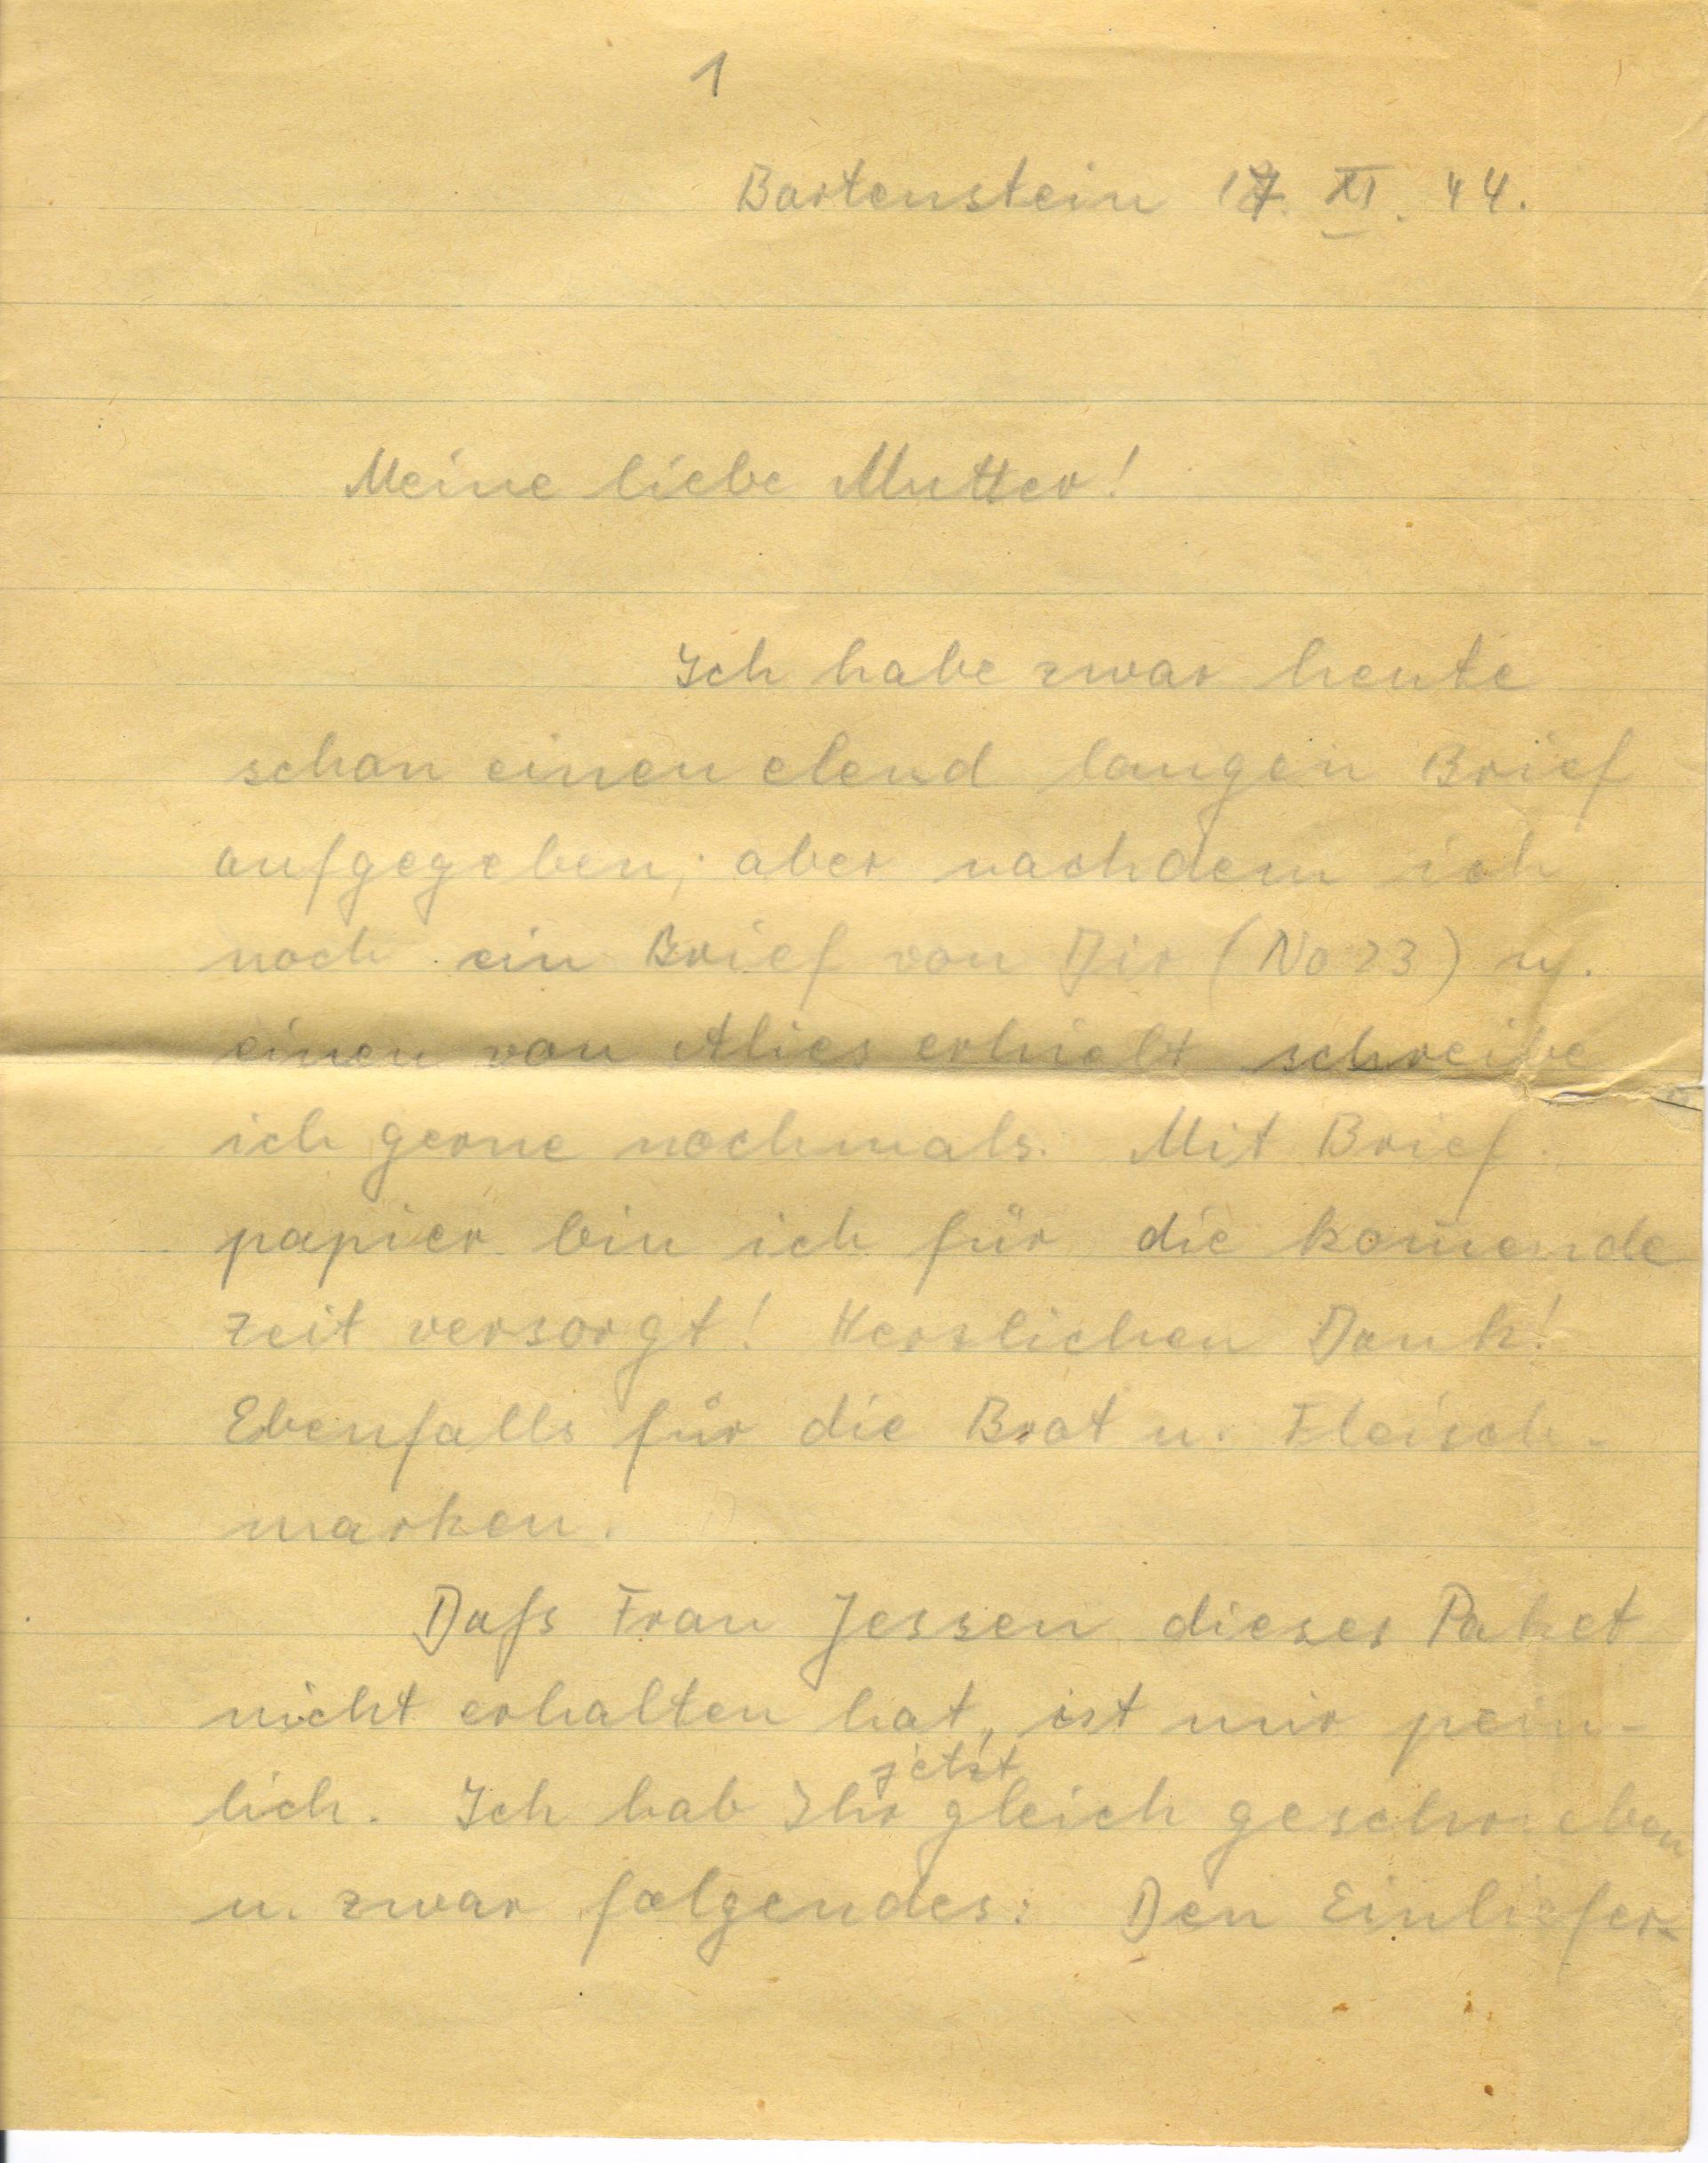 1
Bartenstein 17. XI. 44.
Meine liebe Mutter!
Ich habe zwar heute
schon einen elend langen Brief
aufgegeben; aber nachdem ich
noch ein Brief von Dir (No 23) u.
einen von Alies erhielt schreibe
ich gerne nochmals. Mit Brief-
papier bin ich für die kom̄ende
Zeit versorgt! Herzlichen Dank!
Ebenfalls für die Brot u. Fleisch-
marken.
Dafs Frau Jessen dieses Paket
nicht erhalten hat, ist mir pein-
jetzt
lich. Ich hab Ihr gleich geschrieben
u. zwar folgendes: Den Einliefer-